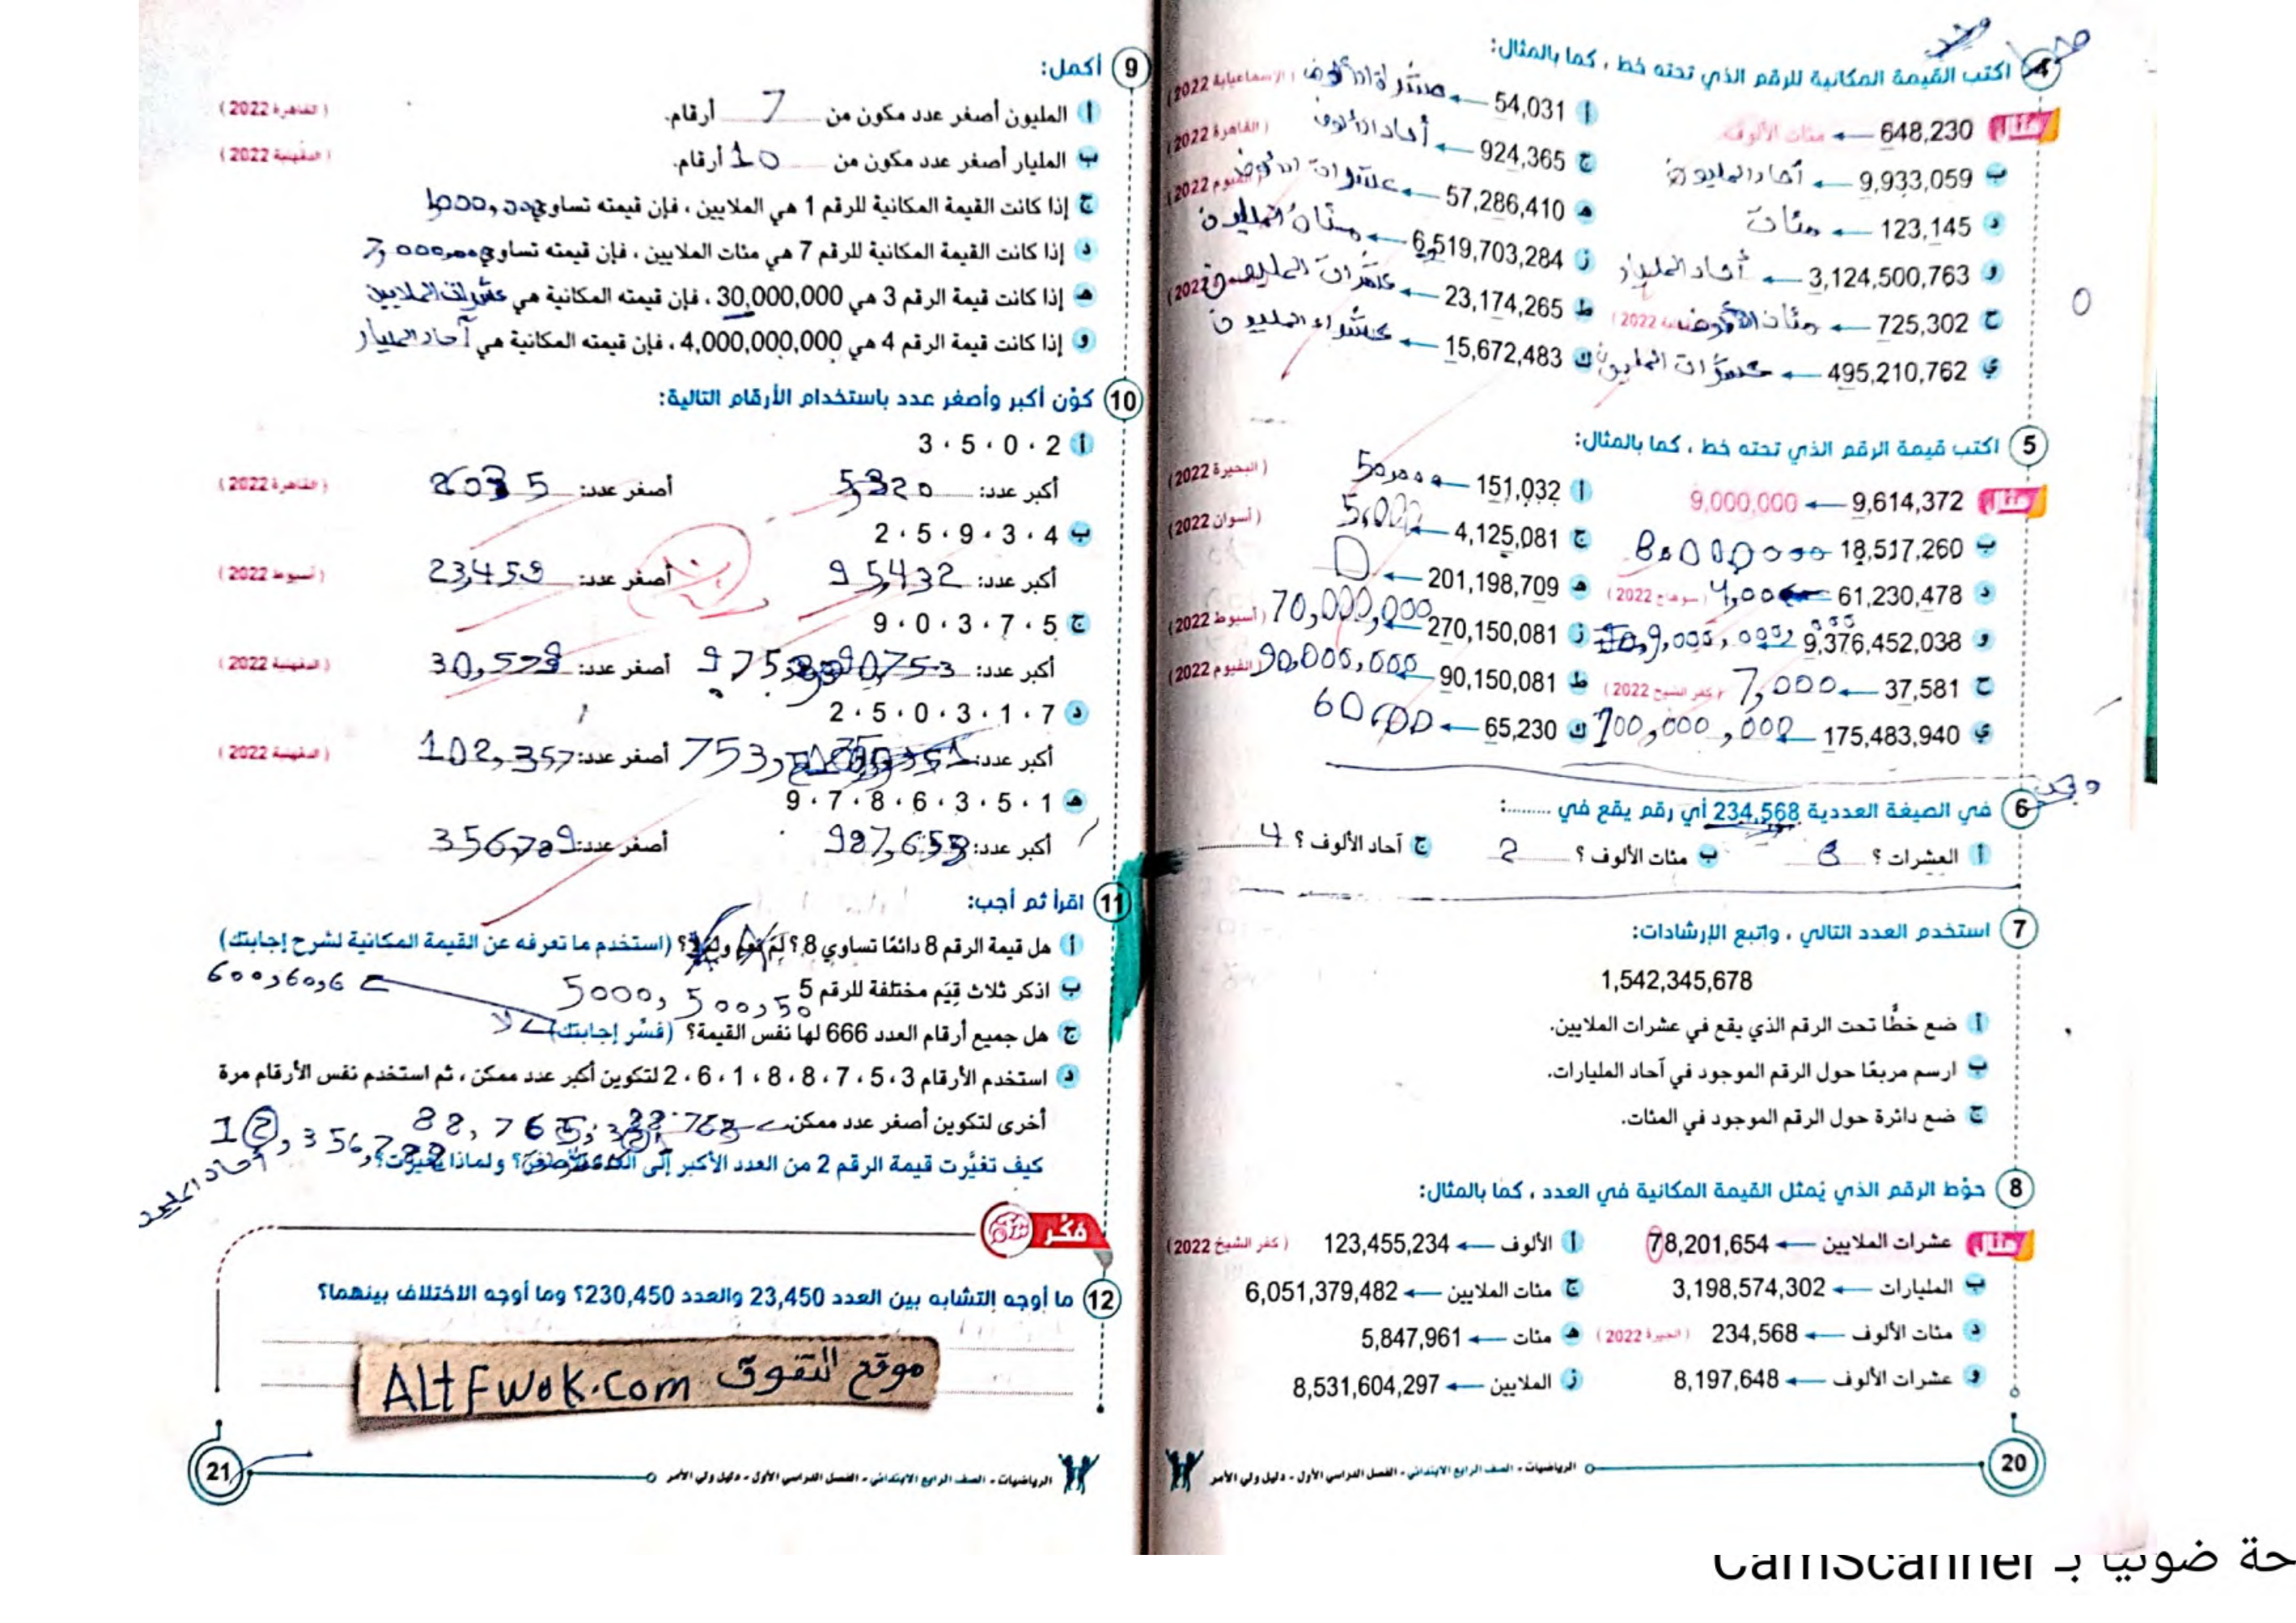 4 اكتب القيمة المكانية للرقم الذي تحته خط ، كما بالمثال:
مثال 648,230 ← مئات الألوف
أ 54,031 ← (الإسماعيلية 2022)
ب 9,933,059 ← آحاد المليون
ج 924,365 ← آحاد الألوف (القاهرة 2022)
د 123,145 ← مئات
هـ 57,286,410 ← عشرات الألوف (الفيوم 2022)
و 3,124,500,763 ← آحاد المليار
ز 6,519,703,284 ← مئات المليون
ح 725,302 ← مئات الألوف 2022)
ط 23,174,265 ← عشرات المليون 2022)
ي 495,210,762 ← عشرات المليون
ك 15,672,483 ← عشرات المليون
5 اكتب قيمة الرقم الذي تحته خط ، كما بالمثال:
مثال 9,614,372 ← 9,000,000
أ 151,032 ← 50,000 (البحيرة 2022)
ب 18,517,260
ج 4,125,081 ← 5,000 (أسوان 2022)
د 61,230,478 ← (سوهاج 2022)
هـ 201,198,709 ← 0
و 9,376,452,038
ز 270,150,081 ← 70,000,000 (أسيوط 2022)
ح 37,581 ← 7,000 (كفر الشيخ 2022)
ط 90,150,081 ← 90,000,000 (الفيوم 2022)
ي 175,483,940 ← 100,000,000
ك 65,230 ← 60,000
6 في الصيغة العددية 234,568 أي رقم يقع في ........:
أ العشرات ؟ 6 ب مئات الألوف ؟ 2 ج آحاد الألوف ؟ 4
7 استخدم العدد التالي ، واتبع الإرشادات:
1,542,345,678
أ ضع خطًّا تحت الرقم الذي يقع في عشرات الملايين.
ب ارسم مربعًا حول الرقم الموجود في آحاد المليارات.
ج ضع دائرة حول الرقم الموجود في المئات.
8 حوّط الرقم الذي يُمثل القيمة المكانية في العدد ، كما بالمثال:
مثال عشرات الملايين ← 78,201,654
أ الألوف ← 123,455,234 (كفر الشيخ 2022)
ب المليارات ← 3,198,574,302
ج مئات الملايين ← 6,051,379,482
د مئات الألوف ← 234,568 (الجيزة 2022)
هـ مئات ← 5,847,961
و عشرات الألوف ← 8,197,648
ز الملايين ← 8,531,604,297
الرياضيات - الصف الرابع الابتدائي - الفصل الدراسي الأول - دليل ولي الأمر
20
9 أكمل:
أ المليون أصغر عدد مكون من 7 أرقام. (القاهرة 2022)
ب المليار أصغر عدد مكون من 10 أرقام. (الدقهلية 2022)
ج إذا كانت القيمة المكانية للرقم 1 هي الملايين ، فإن قيمته تساوي
د إذا كانت القيمة المكانية للرقم 7 هي مئات الملايين ، فإن قيمته تساوي
هـ إذا كانت قيمة الرقم 3 هي 30,000,000 ، فإن قيمته المكانية هي عشرات الملايين
و إذا كانت قيمة الرقم 4 هي 4,000,000,000 ، فإن قيمته المكانية هي آحاد المليار
10 كوّن أكبر وأصغر عدد باستخدام الأرقام التالية:
أ 2 ، 0 ، 5 ، 3
أكبر عدد: 5,320 أصغر عدد: (القاهرة 2022)
ب 4 ، 3 ، 9 ، 5 ، 2
أكبر عدد: 95,432 أصغر عدد: 23,459 (أسيوط 2022)
ج 5 ، 7 ، 3 ، 0 ، 9
أكبر عدد: أصغر عدد: 30,579 (الدقهلية 2022)
د 7 ، 1 ، 3 ، 0 ، 5 ، 2
أكبر عدد: أصغر عدد: 102,357 (الدقهلية 2022)
هـ 1 ، 5 ، 3 ، 6 ، 8 ، 7 ، 9
أكبر عدد: 987,653 أصغر عدد: 356,789
11 اقرأ ثم أجب:
أ هل قيمة الرقم 8 دائمًا تساوي 8 ؟ (استخدم ما تعرفه عن القيمة المكانية لشرح إجابتك)
ب اذكر ثلاث قِيَم مختلفة للرقم 5 5000, 500, 50
ج هل جميع أرقام العدد 666 لها نفس القيمة؟ (فسّر إجابتك) لا 600, 60, 6
د استخدم الأرقام 3 ، 5 ، 7 ، 8 ، 8 ، 1 ، 6 ، 2 لتكوين أكبر عدد ممكن ، ثم استخدم نفس الأرقام مرة
أخرى لتكوين أصغر عدد ممكن. 12,356,788
كيف تغيَّرت قيمة الرقم 2 من العدد الأكبر إلى العدد الأصغر؟ ولماذا تغيرت؟
فكّر
12 ما أوجه التشابه بين العدد 23,450 والعدد 230,450؟ وما أوجه الاختلاف بينهما؟
موقع التفوق ALtFwok.com
الرياضيات - الصف الرابع الابتدائي - الفصل الدراسي الأول - دليل ولي الأمر
21
ضوئيا بـ CamScanner